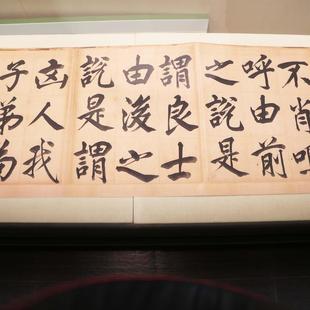 不肖嗚
呼由前
之説是
謂良士
由後之
説是謂
凶人我
子弟為